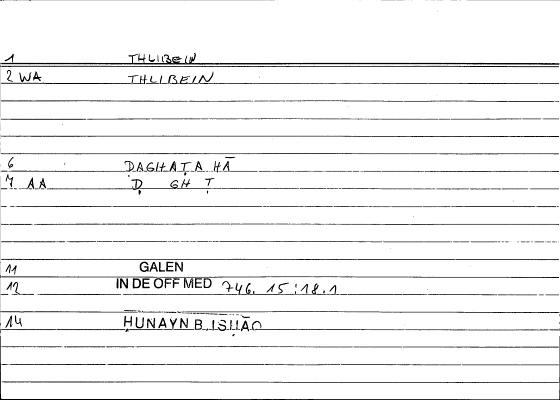 1 THLIBEIN
2 WA THLIBEIN
6 ḌAGHAṬA HĀ
7 AA Ḍ GH Ṭ
11 GALEN
12 IN DE OFF MED 746. 15:18.1
14 ḤUNAYN B. ISḤĀQ